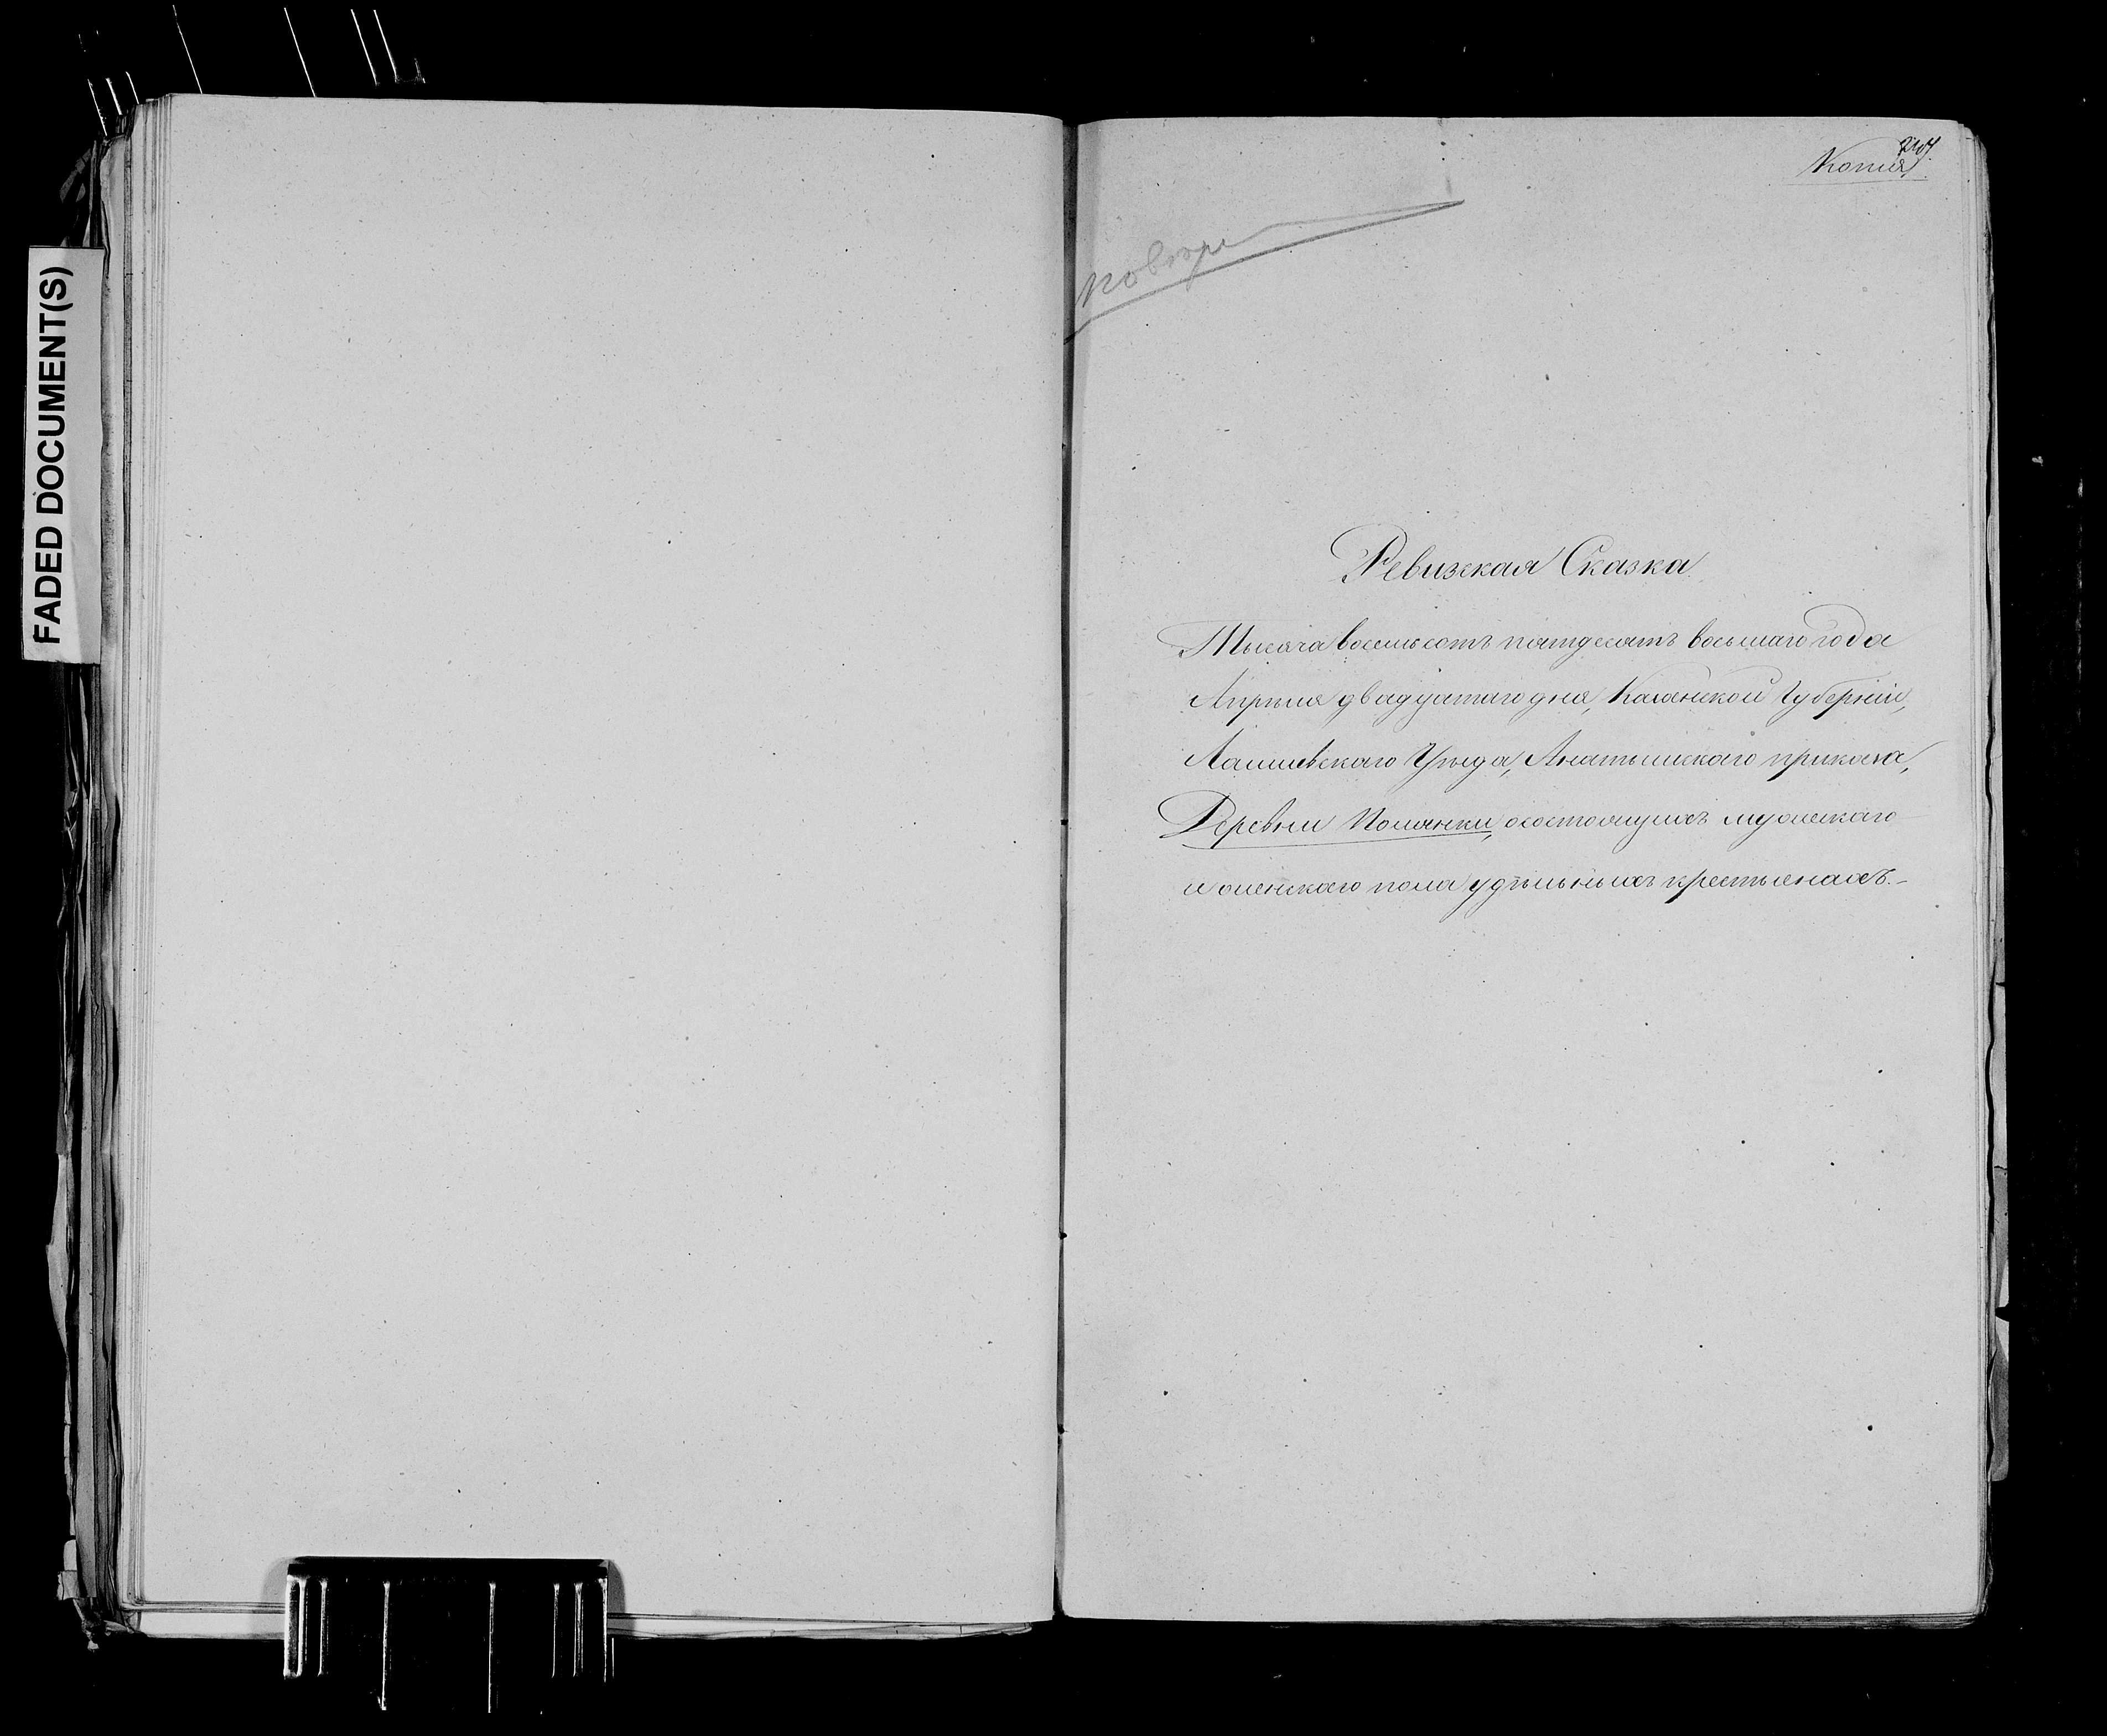 FADED DOCUMENT(S)
Копия
Ревизская Сказка
Тысяча восемьсотъ пятдесятъ восьмаго года
Апрѣля двадцатаго дня, Казанской Губерніи,
Лаишевскаго Уѣзда, Анатышскаго приказа,
Деревни Полянки, о состоящихъ мужескаго
и женскаго пола удѣльныхъ крестьянахъ.